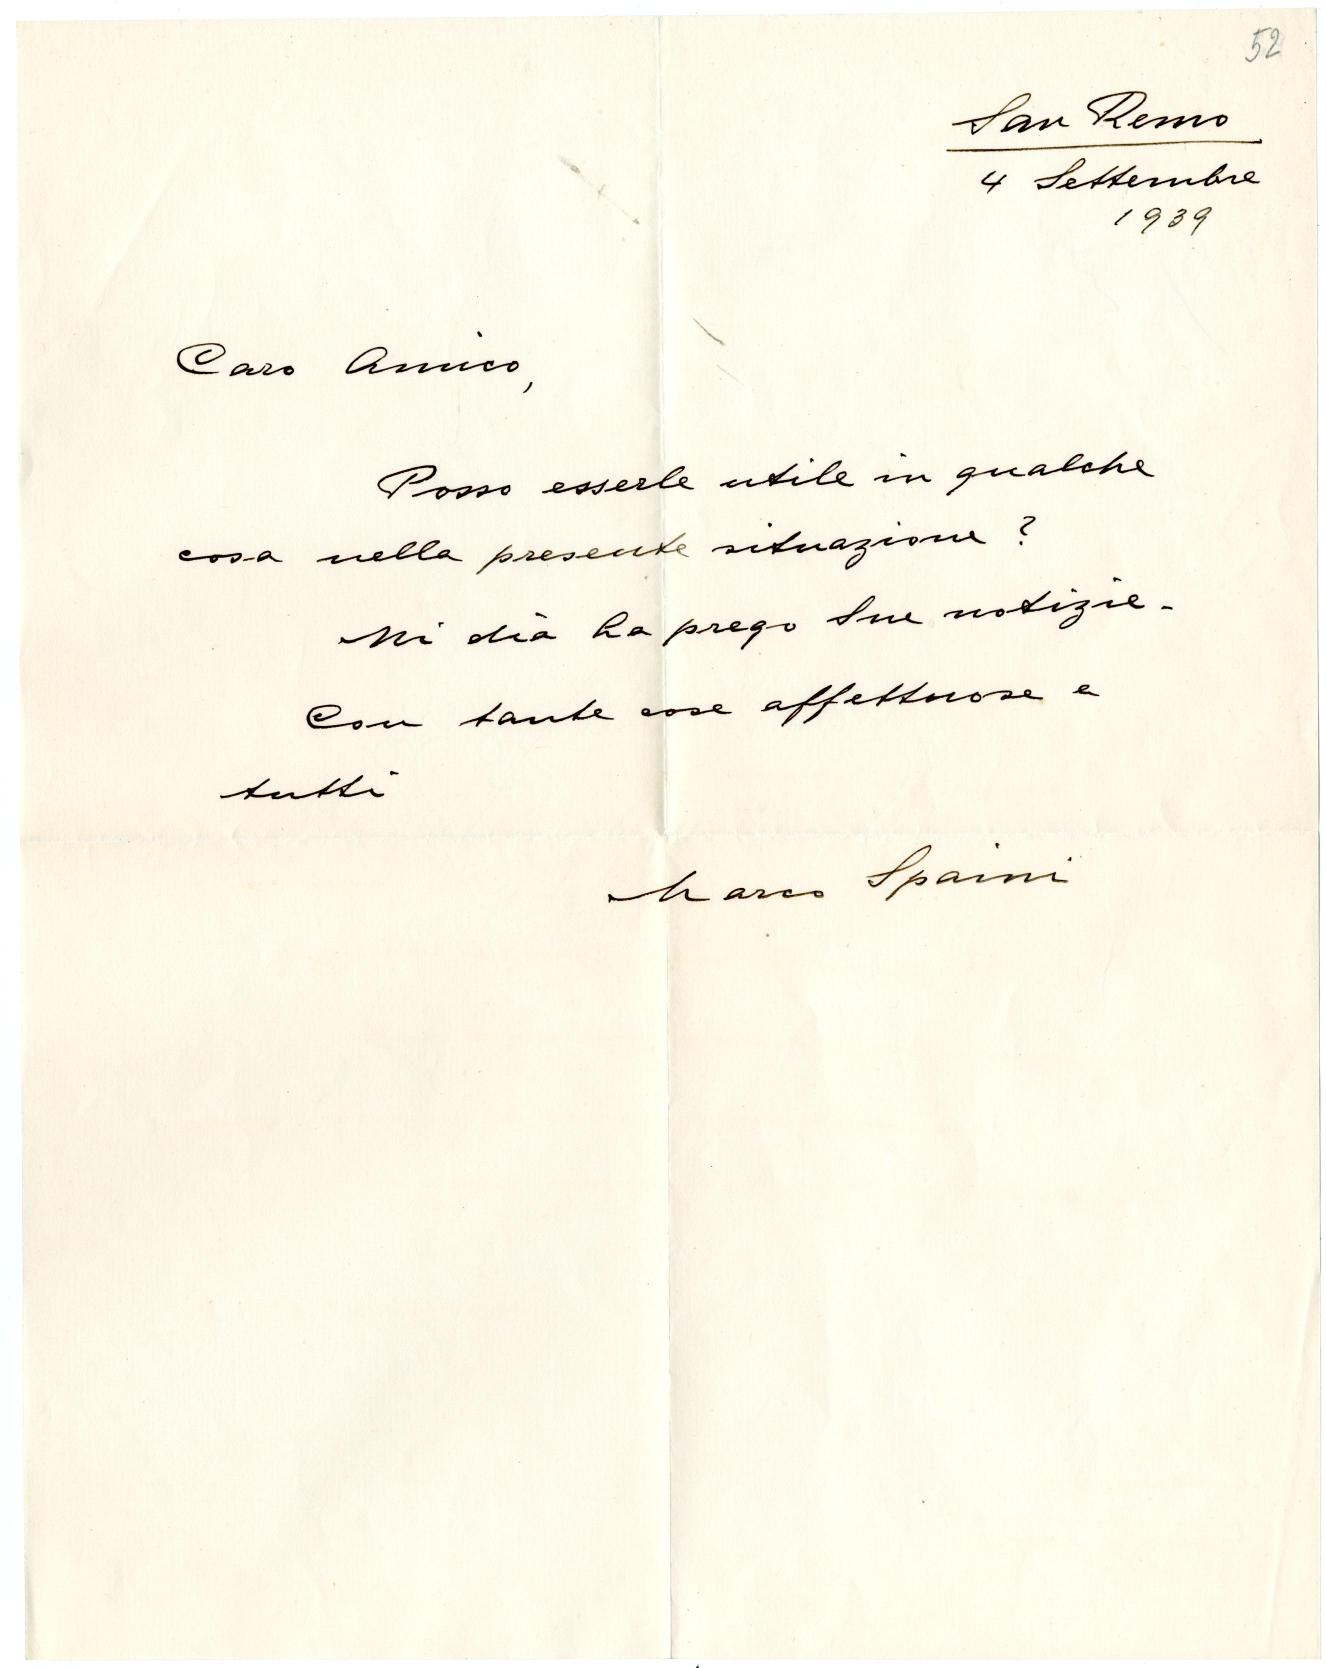 52
San Remo
4 Settembre
1939
Caro Amico,
Posso esserle utile in qualche
cosa nella presente situazione?
Mi dia La prego Sue notizie -
Con tante cose affettuose a
tutti
Marco Spaini